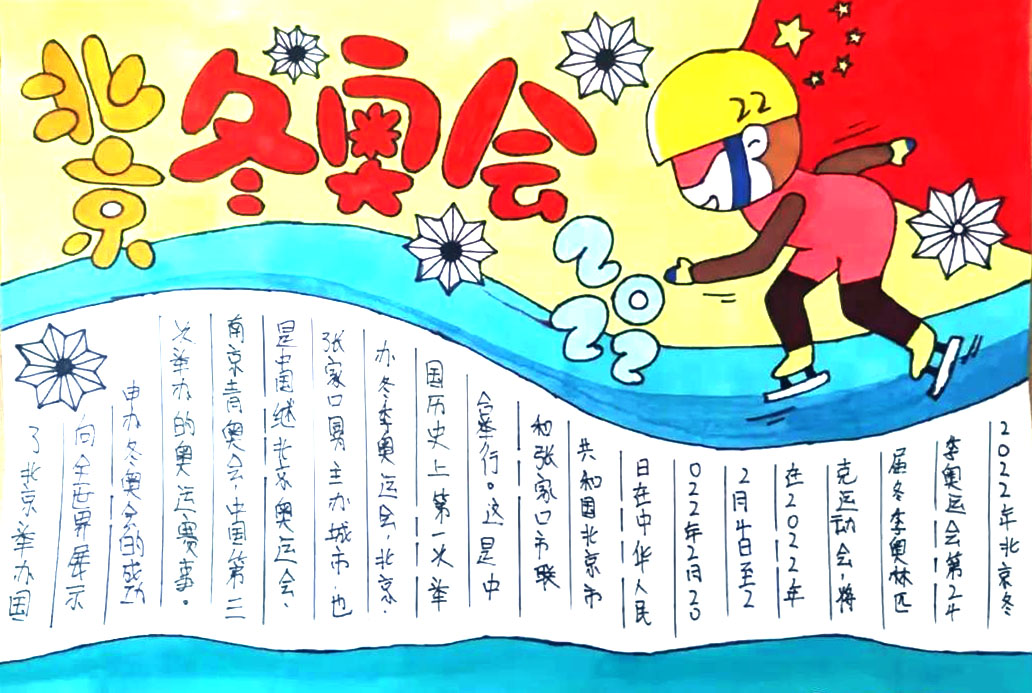 北京
冬奥会
22
2022
2022年北京冬
季奥运会第24
届冬季奥林匹
克运动会，将
在2022年
2月4日至2
022年2月20
日在中华人民
共和国北京市
和张家口市联
合举行。这是中
国历史上第一次举
办冬季奥运会，北京、
张家口主办城市，也
是中国继北京奥运会、
南京青奥会、中国第三
次举办的奥运赛事。
申办冬奥会的成功
向全世界展示
了北京举办国